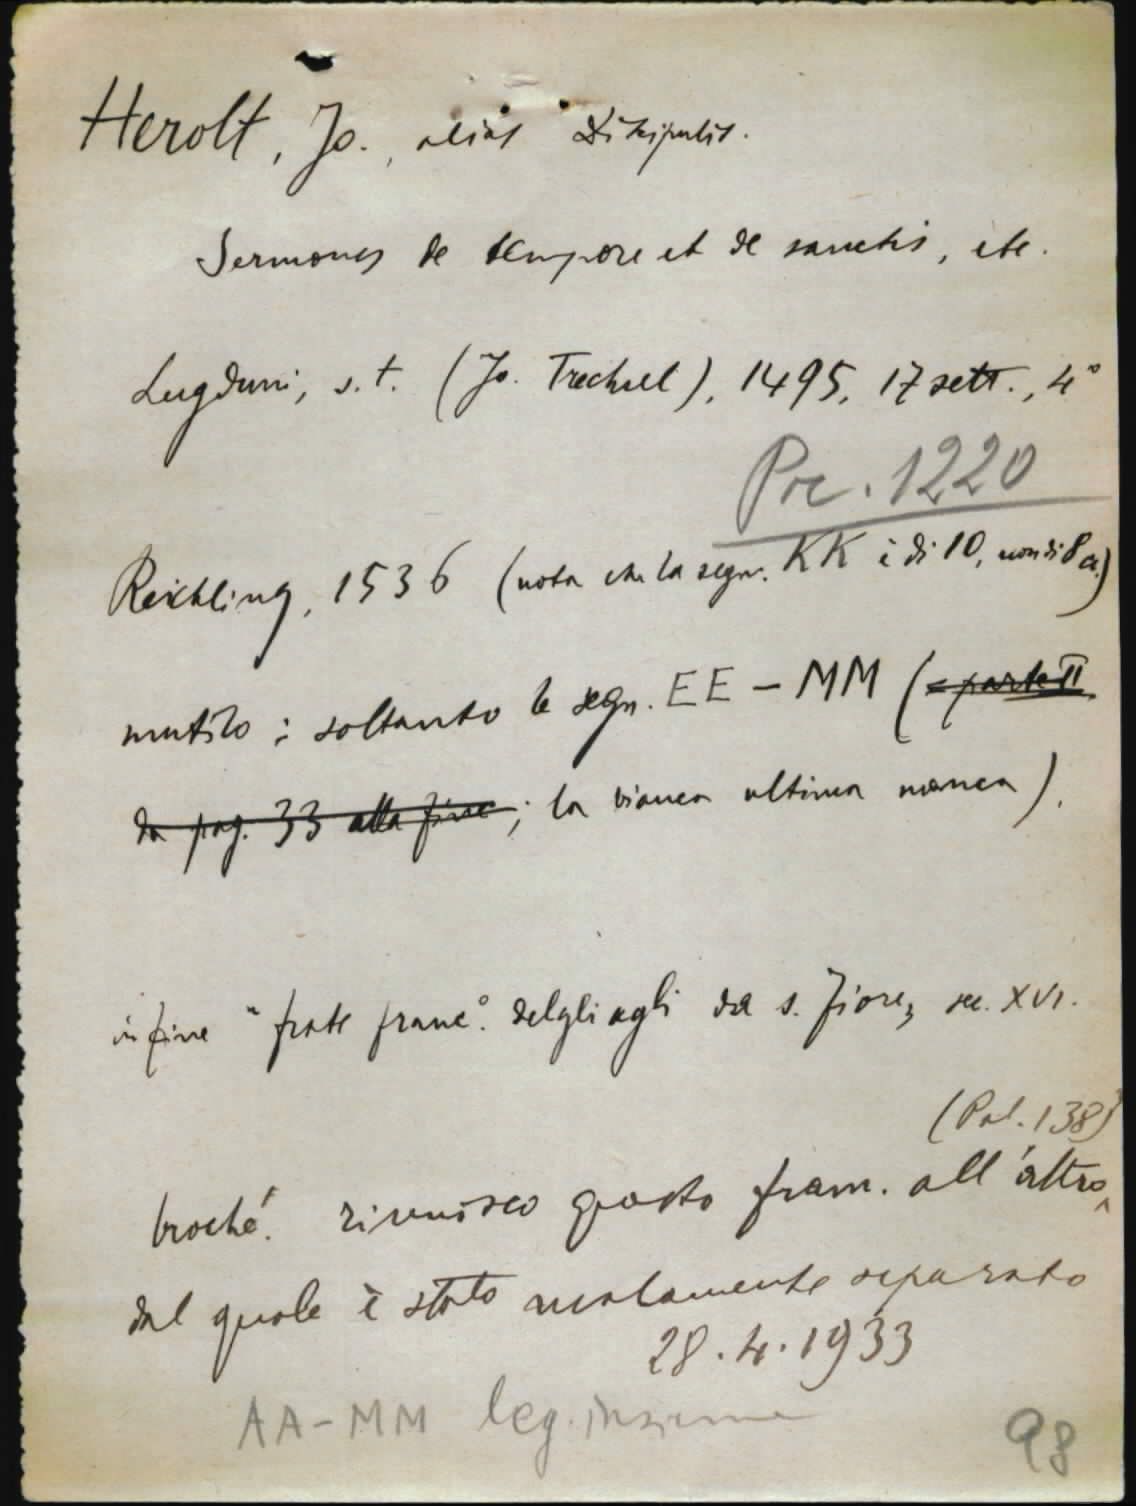 Herolt, Jo., alias Discipulus.
Sermones de tempore et de sanctis, etc.
Lugduni, s. t. (Jo. Trechsel), 1495, 17 sett., 4°
Pr. 1220
Reichling, 1536 (nota che la segn. KK è di 10, non di 8 cc.)
mutilo: soltanto le segn. EE - MM (= parte II
da pag. 33 alla fine; la bianca ultima manca).
in fine "frate franc°. delgli agli da s. fiore, sec. XVI.
(Pal. 138)
broché. riunisco questo fram. all'altro,
dal quale è stato malamente separato
28.4.1933
AA-MM leg. insieme
98